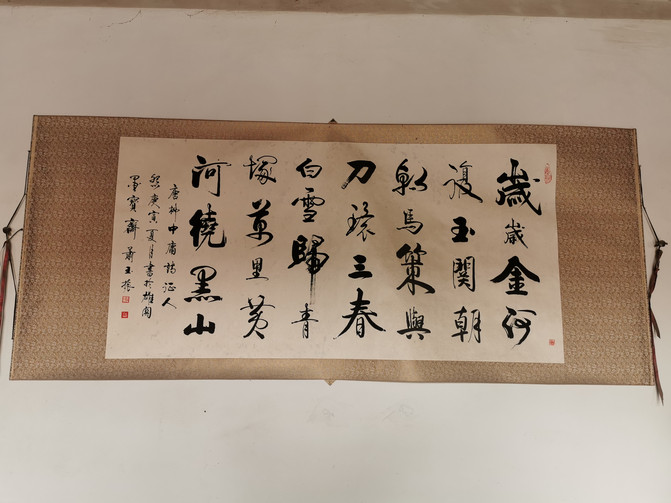 歲歲金河
復玉關朝
朝馬策與
刀環三春
白雪歸青
塚萬里黃
河繞黑山
唐柳中庸詩征人
怨庚寅夏月書於雄關
墨寶齋 蕭玉振